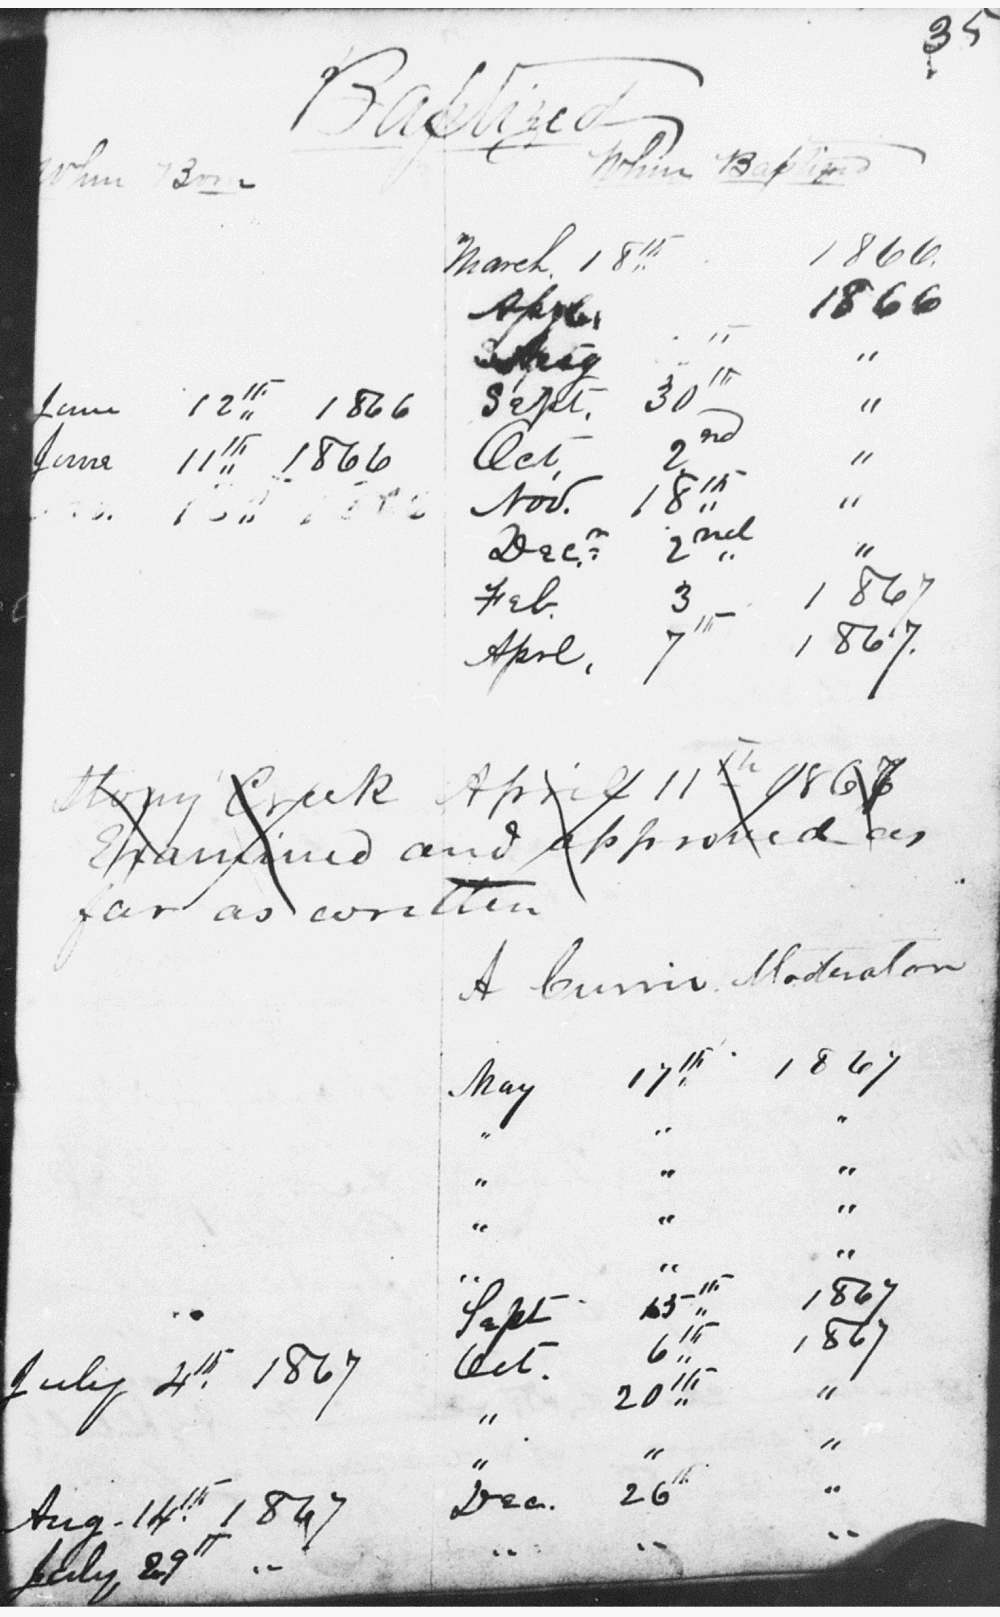 35
Baptized
When Born When Baptized
March 18th 1866.
Aprl. 1866
Aug " "
June 12th 1866 Sept. 30th "
June 11th 1866 Oct. 2nd "
Nov. 18th "
Dec.m 2nd "
Feb. 3 1867
Aprl. 7th 1867.
Stony Creek April 11th 1867
Examined and approved as
far as written
A Currie Moderator
May 17th 1867
" " "
" " "
" " "
" " "
Sept 15th 1867
July 4th 1867 Oct. 6th 1867
" 20th "
" " "
Aug. 14th 1867 Dec. 26th "
July 29th " " " "